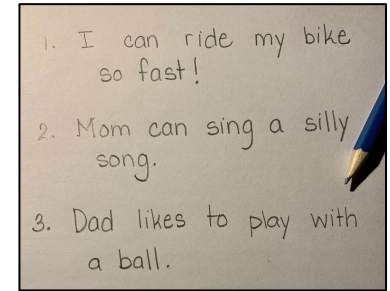 1. I can ride my bike
so fast!
2. Mom can sing a silly
song.
3. Dad likes to play with
a ball.